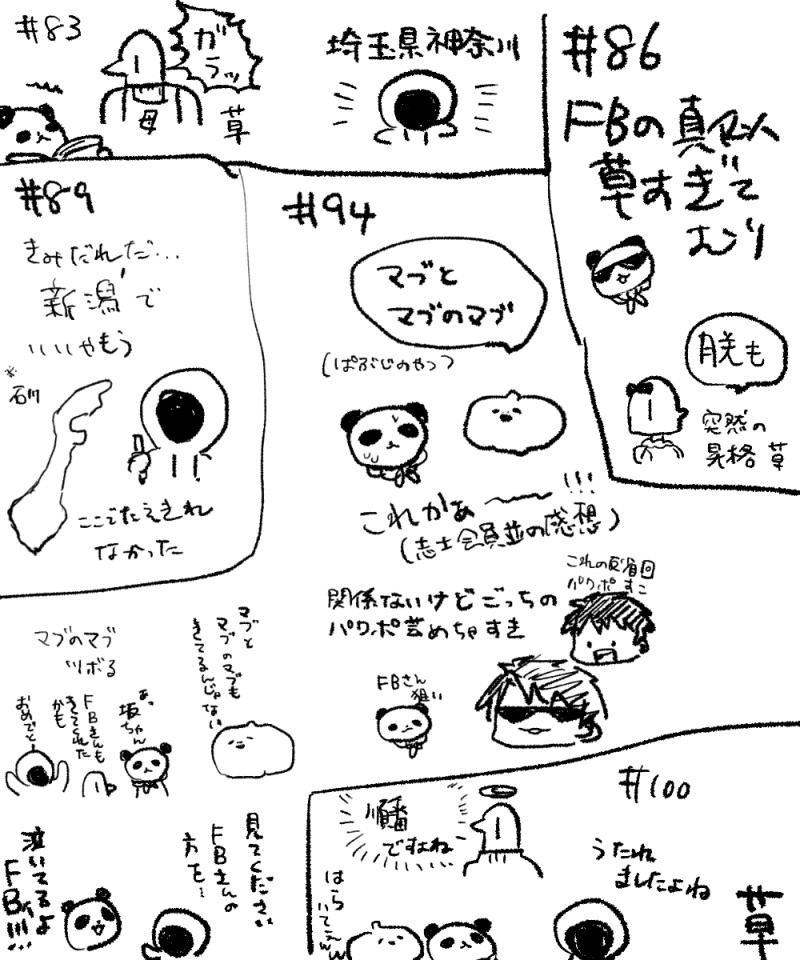 #83
ガラッ
母
草
埼玉県神奈川
#86
FBの真似
草すぎて
むり
月光も
突然の
昇格 草
#89
きみだれだ…
新潟で
いいやもう
※
石川
ここでたえきれ
なかった
#94
マブと
マブのマブ
(ぱぷじのやつ)
これかぁ〜〜!!!
(志士会員並の感想)
関係ないけどごっちの
パワポ芸めちゃすき
これの反省回
パワポすこ
FBさん
狙い
マブのマブ
ツボる
マブと
マブのマブも
きてるんじゃない
あっ
坂ちゃん
FBさんも
きてくれた
かも
おめでとー
見てください
FBさんの
方を…
泣いてるよ
FB!!!
#100
順番
ですよね
うたれ
ましたよね
はらいてぇ
草